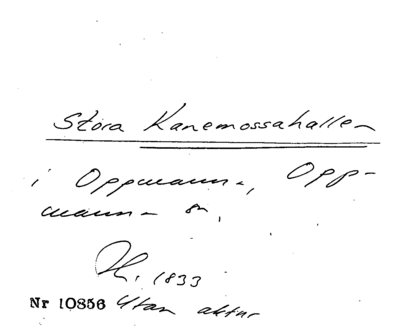 Stora Kanemossahallen
i Oppmanna, Opp-
manna sn.
H. 1833
Nr 10856 Utan aktnr